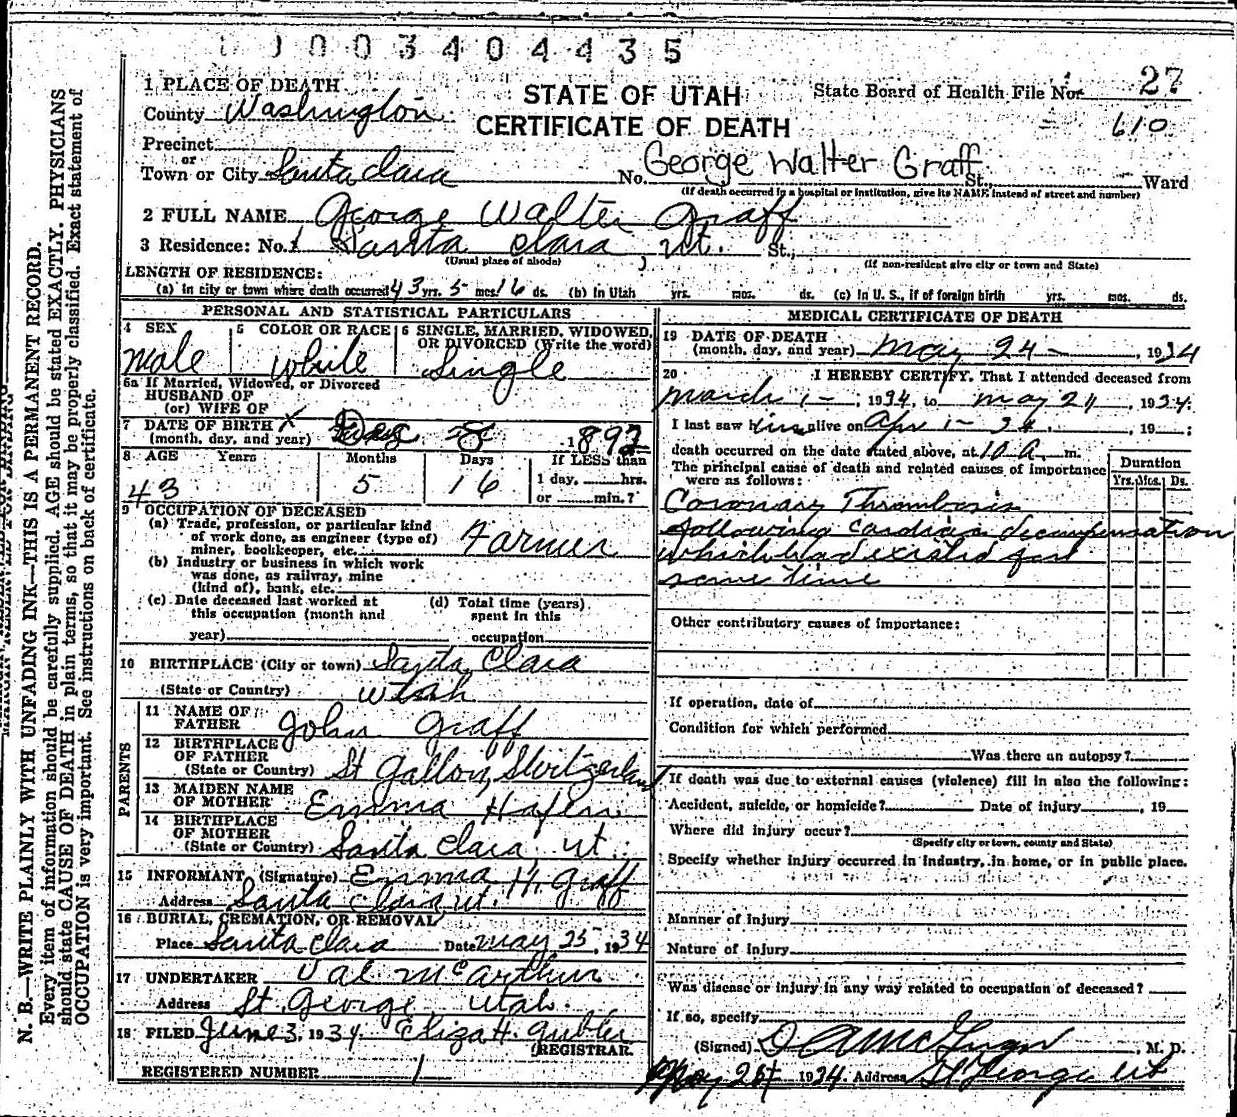 0003404435
1 PLACE OF DEATH
STATE OF UTAH
State Board of Health File No. 27
County Washington
CERTIFICATE OF DEATH
610
Precinct
or
Town or City Santa Clara No. George Walter Graff St., Ward
(If death occurred in a hospital or institution, give its NAME instead of street and number)
2 FULL NAME George Walter Graff
3 Residence: No. Santa Clara, Ut. St.,
(Usual place of abode) (If non-resident give city or town and State)
LENGTH OF RESIDENCE:
(a) In city or town where death occurred 43 yrs. 5 mos. 16 ds. (b) In Utah yrs. mos. ds. (c) In U. S., if of foreign birth yrs. mos. ds.
PERSONAL AND STATISTICAL PARTICULARS
4 SEX 5 COLOR OR RACE 6 SINGLE, MARRIED, WIDOWED, OR DIVORCED (Write the word)
Male White Single
6a If Married, Widowed, or Divorced
HUSBAND OF
(or) WIFE OF
7 DATE OF BIRTH X
(month, day, and year) Dec 8 1892
8 AGE Years Months Days If LESS than
43 5 16 1 day, hrs.
or min.?
9 OCCUPATION OF DECEASED
(a) Trade, profession, or particular kind
of work done, as engineer (type of)
miner, bookkeeper, etc. Farmer
(b) Industry or business in which work
was done, as railway, mine
(kind of), bank, etc.
(c) Date deceased last worked at (d) Total time (years)
this occupation (month and spent in this
year) occupation
10 BIRTHPLACE (City or town) Santa Clara
(State or Country) Utah
PARENTS
11 NAME OF
FATHER John Graff
12 BIRTHPLACE
OF FATHER
(State or Country) St Gallon, Switzerland
13 MAIDEN NAME
OF MOTHER Emma Hafen
14 BIRTHPLACE
OF MOTHER
(State or Country) Santa Clara Ut.
15 INFORMANT (Signature) Emma H. Graff
Address Santa Clara Ut.
16 BURIAL, CREMATION, OR REMOVAL
Place Santa Clara Date May 25, 1934
17 UNDERTAKER Val McArthur
Address St. George Utah.
18 FILED June 3, 1934. Eliza H. Gubler
(REGISTRAR.
REGISTERED NUMBER 1
MEDICAL CERTIFICATE OF DEATH
19 DATE OF DEATH
(month, day, and year) May 24 – , 1934
20 I HEREBY CERTIFY, That I attended deceased from
March 1 – , 1934, to May 24, 1934.
I last saw him alive on Apr 1 – 34. , 19 ;
death occurred on the date stated above, at 10 a. m.
The principal cause of death and related causes of importance
were as follows:
Duration
Yrs. Mos. Ds.
Coronary Thrombosis
following cardiac decompensation
which had existed for
some time
Other contributory causes of importance:
If operation, date of
Condition for which performed
Was there an autopsy?
If death was due to external causes (violence) fill in also the following:
Accident, suicide, or homicide? Date of injury , 19
Where did injury occur?
(Specify city or town, county and State)
Specify whether injury occurred in industry, in home, or in public place.
Manner of injury
Nature of injury
Was disease or injury in any way related to occupation of deceased?
If so, specify
(Signed) , M. D.
May 1934. Address St George Ut
N. B.—WRITE PLAINLY WITH UNFADING INK—THIS IS A PERMANENT RECORD.
Every item of information should be carefully supplied. AGE should be stated EXACTLY. PHYSICIANS
should state CAUSE OF DEATH in plain terms, so that it may be properly classified. Exact statement of
OCCUPATION is very important. See instructions on back of certificate.